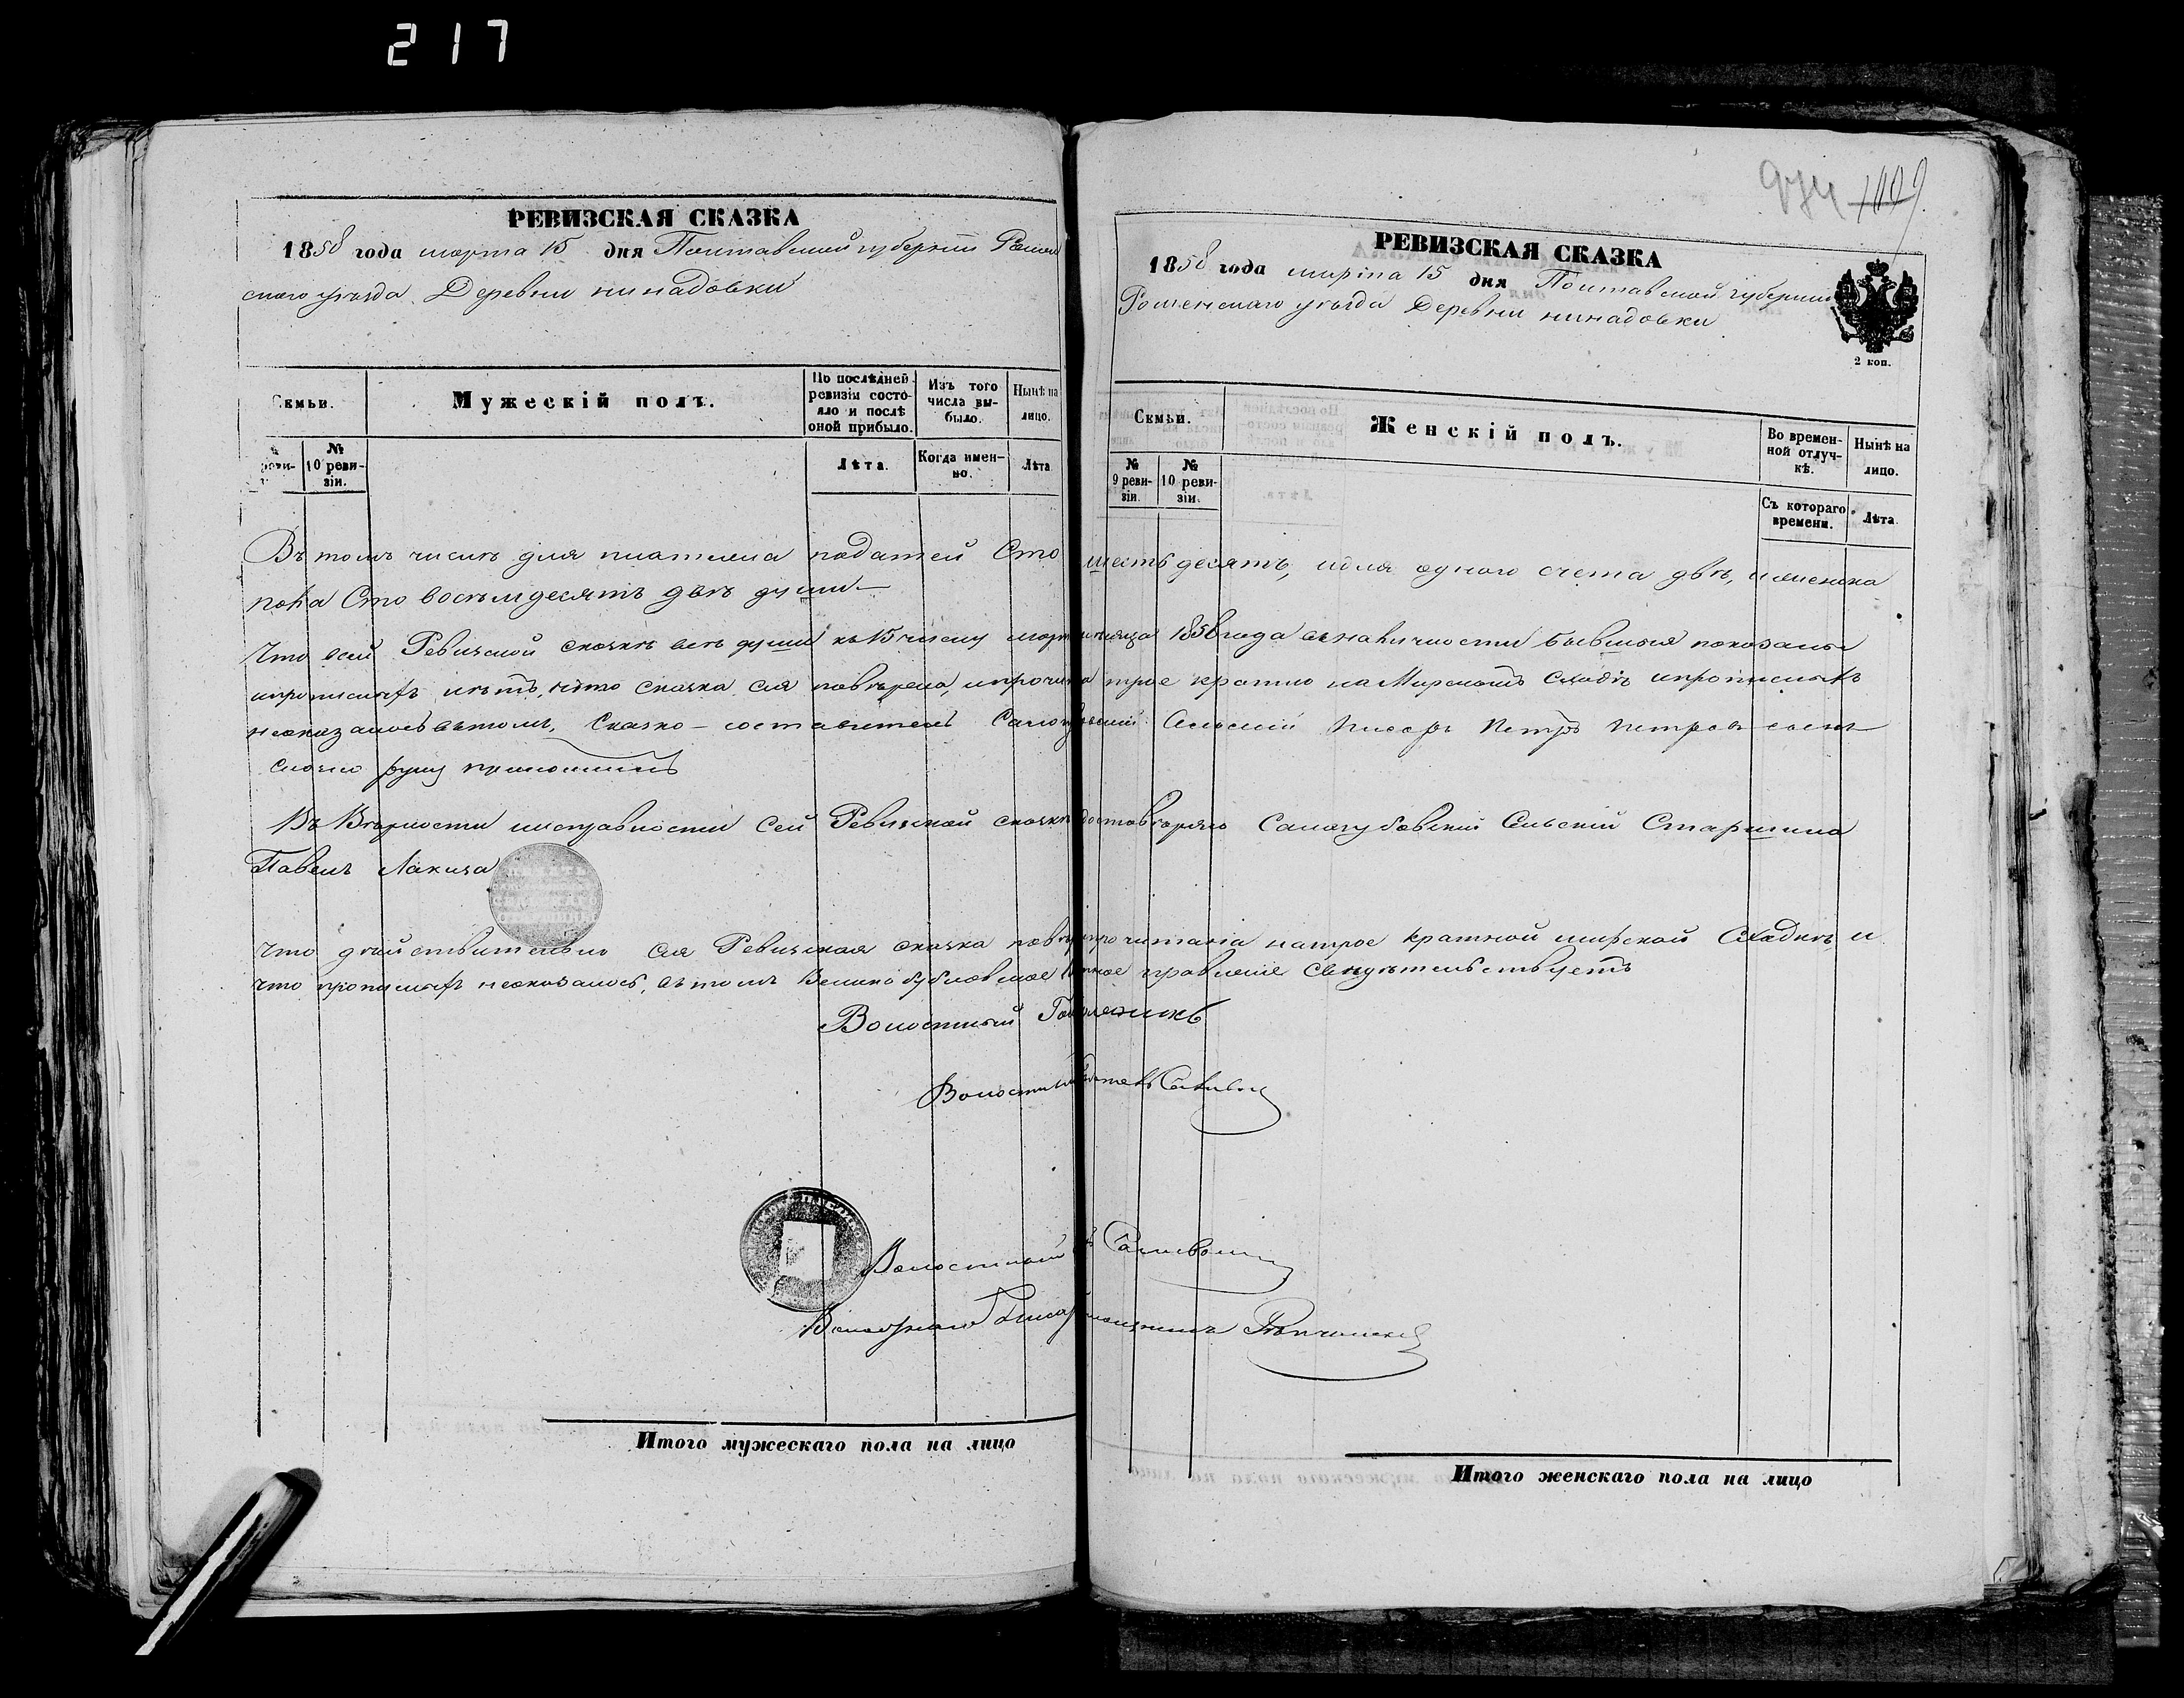 217
974 1109
РЕВИЗСКАЯ СКАЗКА
1858 года марта 15 дня Полтавской губерніи Ромен
скаго уѣзда Деревни нинадовки
Семьи.
Мужескій полъ.
По послѣдней ревизіи состояло и послѣ оной прибыло.
Изъ того числа выбыло.
Нынѣ на лицо.
№ 10 ревизіи.
Лѣта.
Когда именно.
Лѣта
РЕВИЗСКАЯ СКАЗКА
1858 года марта 15 дня Полтавской губерніи
Роменскаго уѣзда Деревни нинадовки
2 коп.
Семьи.
Женскій полъ.
Во временной отлучкѣ.
Нынѣ на лицо.
№ 9 ревизіи.
№ 10 ревизіи.
Съ котораго времени.
Лѣта.
Въ томъ числѣ для платежа податей Сто шестьдесятъ, идля одного счета двѣ, иженска
пола Сто восемьдесятъ двѣ души
Что всей Ревизской сказкѣ всѣ души къ 15 числу марта мѣсяца 1858 года въ наличности бывшыя показаны
ипрописныхъ нѣтъ, что сказка сія повѣрена, ипрочитана трое кратно на Мирскомъ Сходѣ ипрописныхъ
неоказалось вътомъ, Сказко-составитель Самогубовскій Сельскій Писарь Петръ Петровъ сынъ
руку приложилъ
Въ Вѣрности иисправности Сей Ревизской сказки удостовѣряю Самогубовскій Сельскій Старшина
Павелъ Лакиза
Что дѣйствительно сія Ревизская сказка повѣрена ипрочитана натрое кратной мирской Сходкѣ и
что прописныхъ неоказалось, вътомъ Великобубновское правленіе Свидѣтельствуетъ
Волостный Голова
Волостный
Волостный
Волостнаго Писаря помощникъ
Итого мужескаго пола на лицо
Итого женскаго пола на лицо